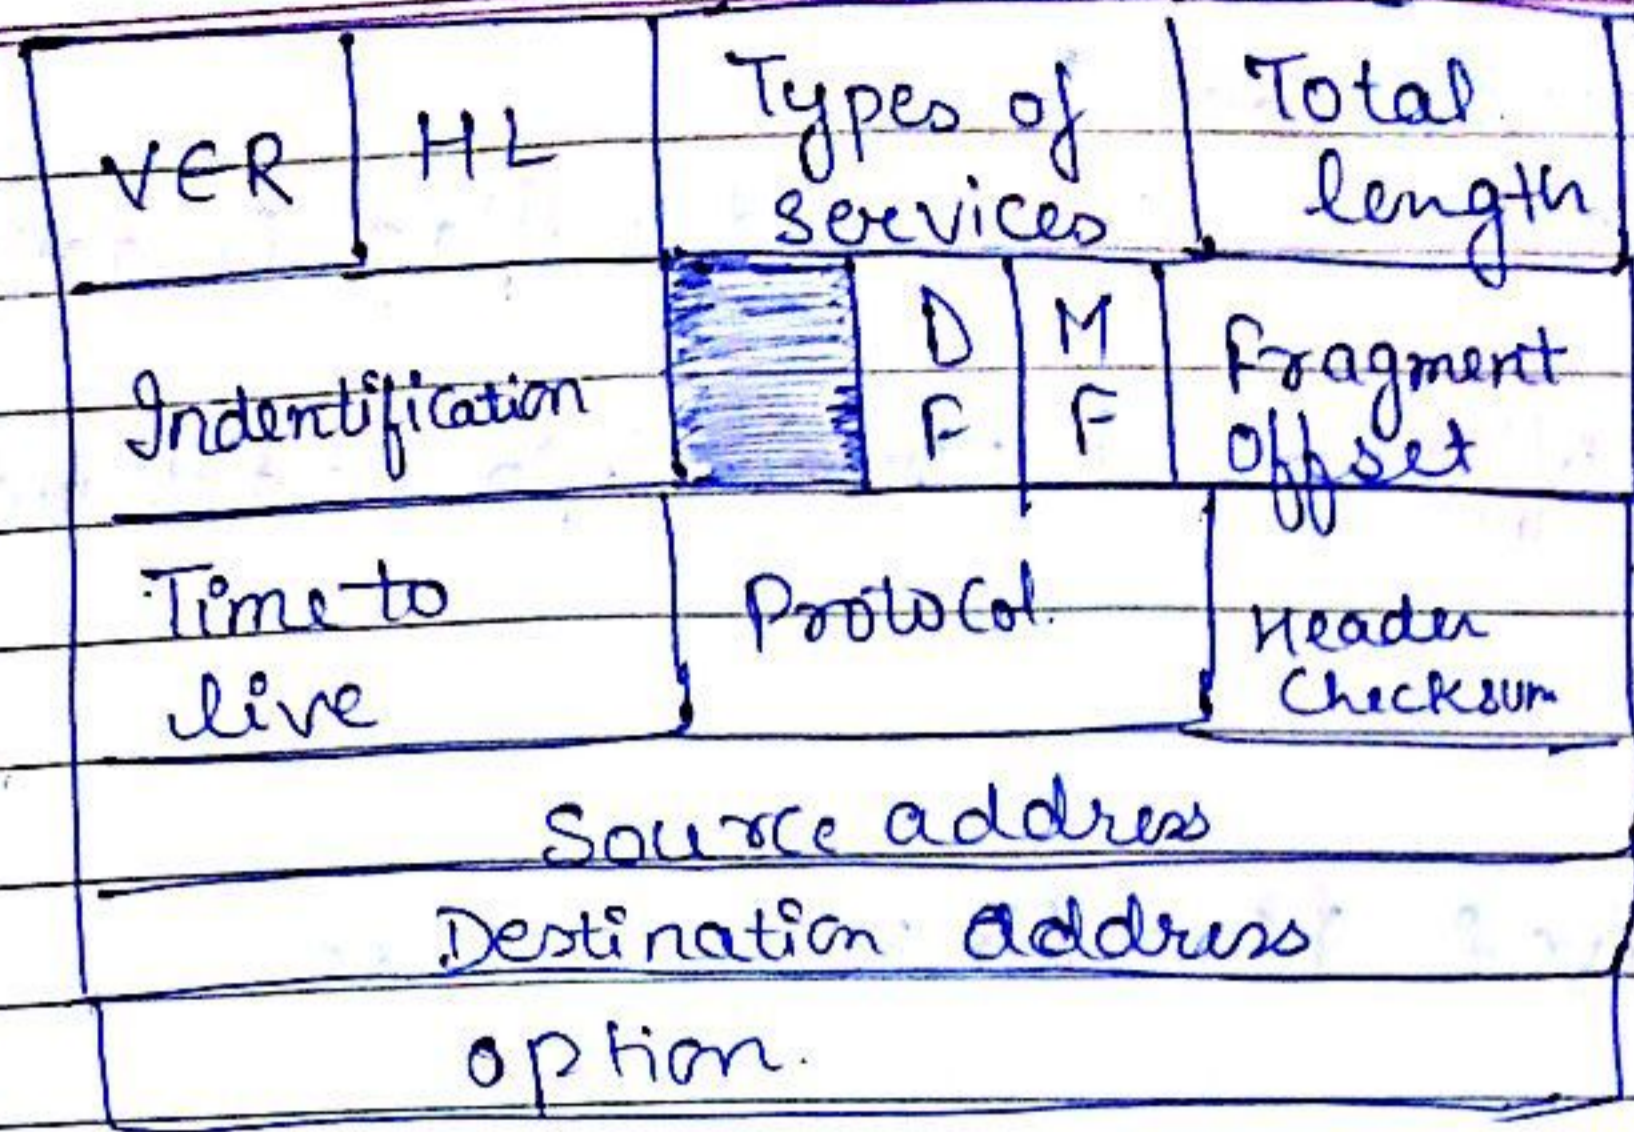 VER HL Types of services Total length
Indentification D F M F Fragment Offset
Time to live Protocol. Header Checksum
Source address
Destination address
option.